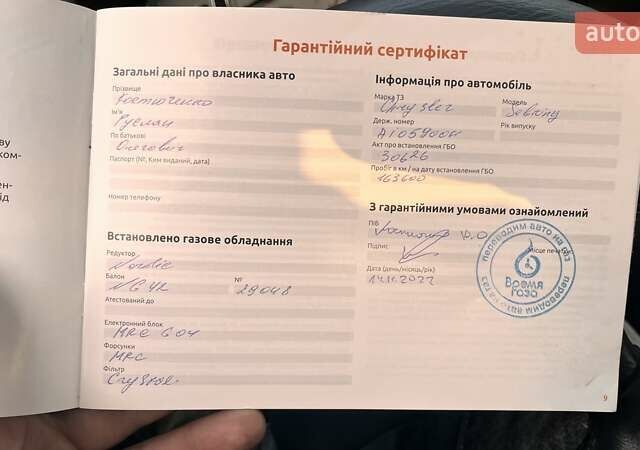 auto
Гарантійний сертифікат
Загальні дані про власника авто
Прізвище
Костюченко
Ім'я
Руслан
По батькові
Олегович
Паспорт (№, Ким виданий, дата)
Номер телефону
Встановлено газове обладнання
Редуктор
Nordic
Балон
№
29048
Атестований до
Електронний блок
Форсунки
Фільтр
Інформація про автомобіль
Марка ТЗ
Chrysler
Модель
Sebring
Держ. номер
Рік випуску
Акт про встановлення ГБО
30626
Пробіг в км / на дату встановлення ГБО
163600
З гарантійними умовами ознайомлений
ПІБ
Підпис
Місце печатки
Дата (день/місяць/рік)
14.11.2022
переводим авто на газ
Время газа
9
ву
ком-
ен-
ід